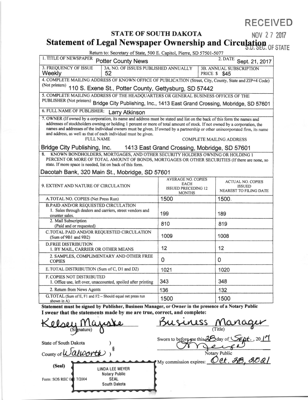 RECEIVED
NOV 27 2017
S.D. SEC. OF STATE
STATE OF SOUTH DAKOTA
Statement of Legal Newspaper Ownership and Circulation
Return to: Secretary of State, 500 E. Capitol, Pierre, SD 57501-5077
1. TITLE OF NEWSPAPER Potter County News
2. DATE Sept. 21, 2017
3. FREQUENCY OF ISSUE Weekly
3A. NO. OF ISSUES PUBLISHED ANNUALLY 52
3B. ANNUAL SUBSCRIPTION PRICE $ $45
4. COMPLETE MAILING ADDRESS OF KNOWN OFFICE OF PUBLICATION (Street, City, County, State and ZIP+4 Code)
(Not printers) 110 S. Exene St., Potter County, Gettysburg, SD 57442
5. COMPLETE MAILING ADDRESS OF THE HEADQUARTERS OR GENERAL BUSINESS OFFICES OF THE
PUBLISHER (Not printers) Bridge City Publishing, Inc., 1413 East Grand Crossing, Mobridge, SD 57601
6. FULL NAME OF PUBLISHER: Larry Atkinson
7. OWNER (If owned by a corporation, its name and address must be stated and
FULL NAME COMPLETE MAILING ADDRESS
Bridge City Publishing, Inc. 1413 East Grand Crossing, Mobridge, SD 57601
8. KNOWN BONDHOLDERS, MORTGAGES, AND OTHER SECURITY HOLDERS OWNING OR HOLDING 1
PERCENT OR MORE OF TOTAL AMOUNT OF BONDS, MORTGAGES OR OTHER SECURITIES (If there are none, so
state. If more space is needed, list on back of this form.
Dacotah Bank, 320 Main St., Mobridge, SD 57601
9. EXTENT AND NATURE OF CIRCULATION
AVERAGE NO. COPIES EACH ISSUED PRECEDING 12 MONTHS
ACTUAL NO. COPIES ISSUED NEAREST TO FILING DATE
A. TOTAL NO. COPIES (Net Press Run) 1500 1500
B. PAID AND/OR REQUESTED CIRCULATION
1. Sales through dealers and carriers, street vendors and counter sales. 199 189
2. Mail Subscription (Paid and or requested) 810 819
C. TOTAL PAID AND/OR REQUESTED CIRCULATION
(Sum of 9B1 and 9B2) 1009 1008
D. FREE DISTRIBUTION
1. BY MAIL, CARRIER OR OTHER MEANS 12 12
2. SAMPLES, COMPLIMENTARY AND OTHER FREE COPIES 0 0
E. TOTAL DISTRIBUTION (Sum of C, D1 and D2) 1021 1020
F. COPIES NOT DISTRIBUTED
1. Office use, left over, unaccounted, spoiled after printing 343 348
2. Return from News Agents 136 132
G. TOTAL (Sum of E, F1 and F2 - Should equal net press run shown in A) 1500 1500
Statement must be signed by Publisher, Business Manager, or Owner in the presence of a Notary Public
I swear that the statements made by me are true, correct, and complete:
Business Manager
(Signature) (Title)
State of South Dakota )
County of Walworth )
Notary Public
(Seal)
My commission expires: Oct. 28, 2021
LINDA LEE MEYER
Notary Public
SEAL
South Dakota